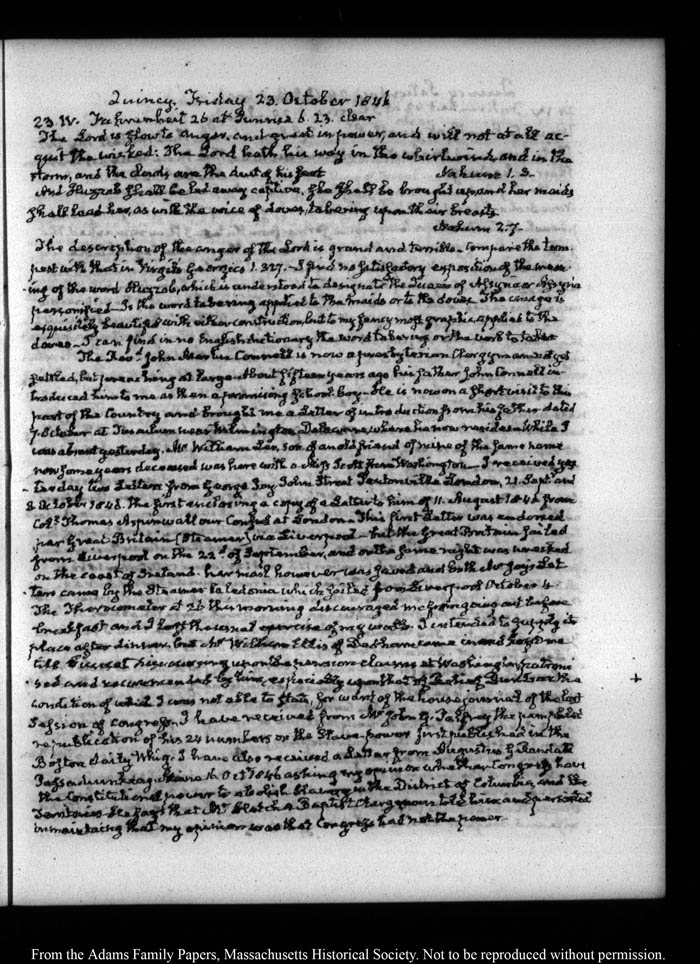 Quincy, Friday 23. October 1846
23. IV. Fahrenheit 26 at Sunrise 6. 23. clear
The Lord is slow to anger, and great in power, and will not at all ac-
quit the wicked: The Lord hath his way in the whirlwind, and in the
storm, and the clouds are the dust of his feet Nahum 1. 3.
And Huzzab shall be led away captive, she shall be brought up, and her maids
shall lead her, as with the voice of doves, tabering upon their breasts
Nahum 2.7.
The description of the anger of the Lord is grand and terrible. Compare the tem-
pest with that in Virgil's Georgics 1. 327. I find no satisfactory exposition of the mean-
ing of the word Huzzab, which is understood to designate the Queen of Assyria or Assyria
personified. Is the word tabering applied to the maids or to the doves. The image is
exquisitely beautiful with either construction, but to my fancy most graphic applied to the
doves. I can find in no English dictionary the word tabering or the verb to taber
The Revd. John Martin Connell is now a presbyterian Clergyman not yet
settled, but preaching at large. About fifteen years ago his father John Connell in-
troduced him to me as then a promising school boy. He is now on a short visit to this
part of the Country and brought me a Letter of introduction from his father dated
7. October at Tusculum near Wilmington, Delaware, where he now resides. While I
was absent yesterday, Mr William Lee, son of an old friend of mine of the same name
now some years deceased was here with a Miss Scott from Washington. I received yes-
terday two Letters from George Joy John Street Pentonville London, 21. Septr and
2 October 1846. The first enclosing a copy of a Letter to him of 11. August 1846 from
Coll. Thomas Aspinwall our Consul at London. This first Letter was endorsed
per Great Britain (Steamer) via Liverpool. but the Great Britain sailed
from Liverpool on the 22d of September, and on the same night was wrecked
on the coast of Ireland. her mail however was saved and both Mr Joy's Let-
ters came by the Steamer Caledonia which sailed from Liverpool October 4.
The Thermometer at 26 this morning discouraged me from going out before
breakfast and I lost the usual exercise of my walk. I intended to supply its
place after dinner, but Mr William Ellis of Dedham came in and kept me
till discoursing upon the pension claims at Washington patroni-
sed and recommended by him, especially upon that of the
condition of which I was not able to state, for want of the house journal of the last
Session of Congress. I have received from Mr John G. Palfrey the pamphlet
republication of his 24 numbers on the Slave power first published in the
Boston daily Whig. I have also received a Letter from Augustus
Passadumkeag Maine Oct 1846 asking my opinion whether Congress have
the Constitutional power to abolish Slavery in the District of Columbia, and the
Territories. He says that Mr a Baptist Clergyman told him and persisted
in maintaining that my opinion was that Congress had not the power
From the Adams Family Papers, Massachusetts Historical Society. Not to be reproduced without permission.